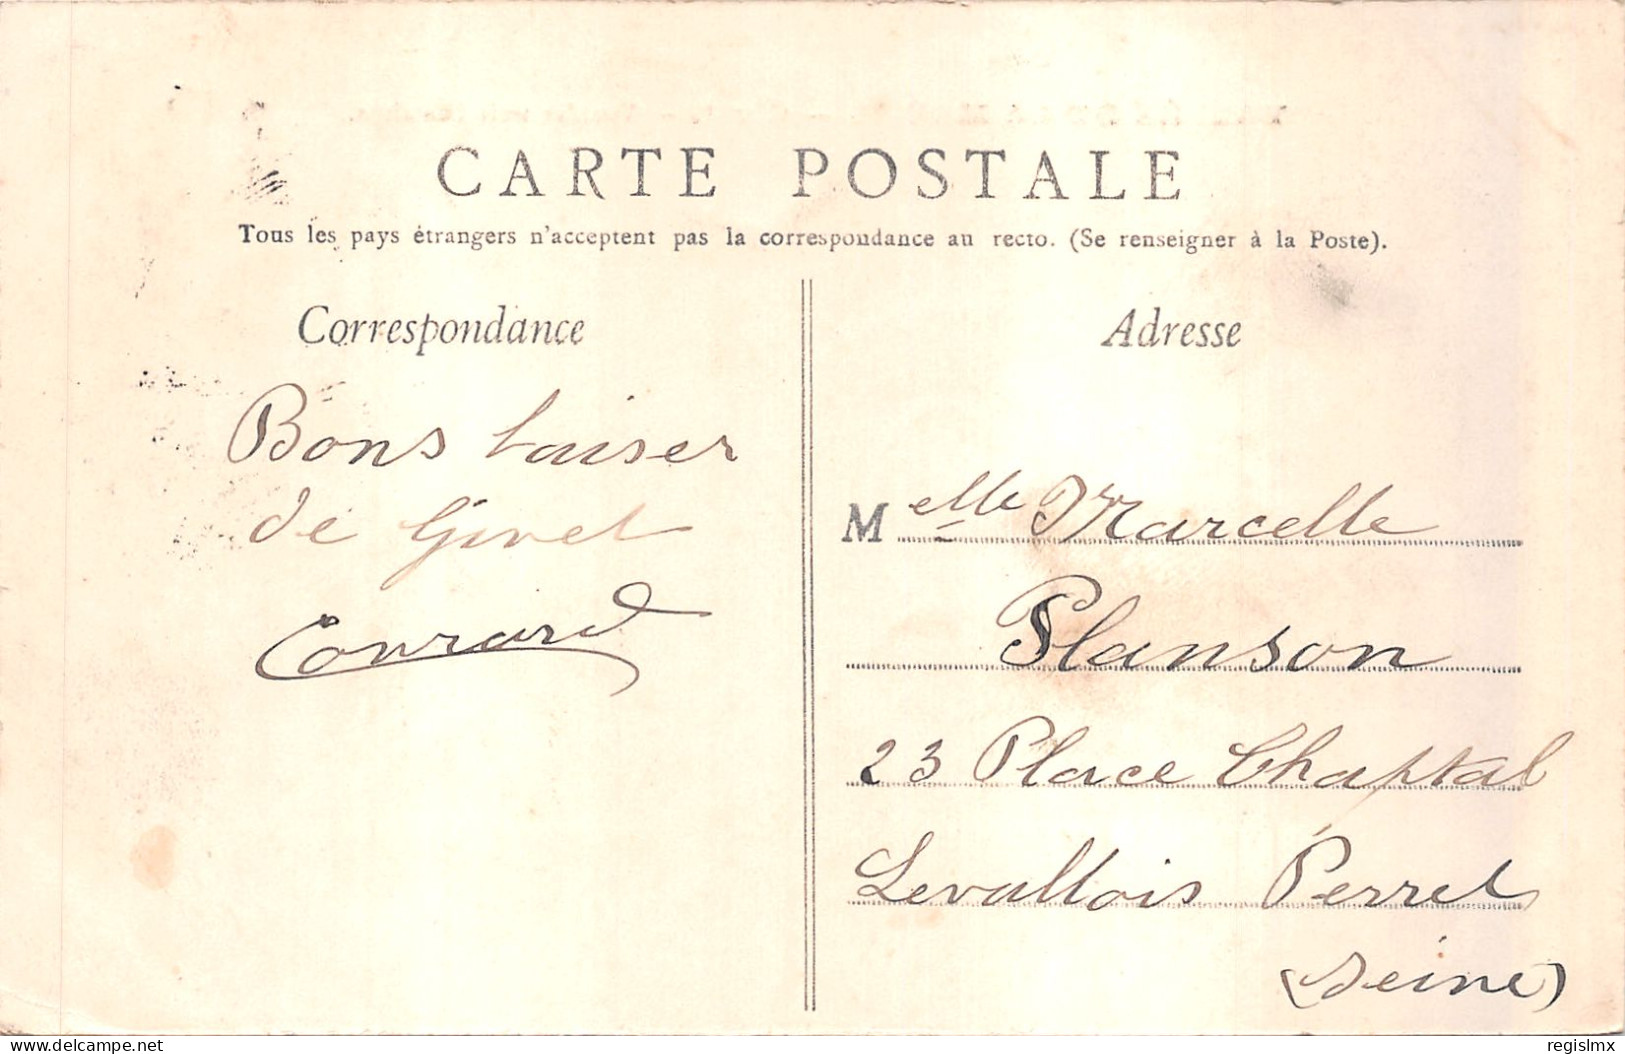 CARTE POSTALE
Tous les pays étrangers n'acceptent pas la correspondance au recto. (Se renseigner à la Poste).
Correspondance
Adresse
Bons baiser
de Givet
Conrard
Melle Marcelle
Planson
23 Place Chaptal
Levallois Perret
(Seine)
delcampe.net
regislmx